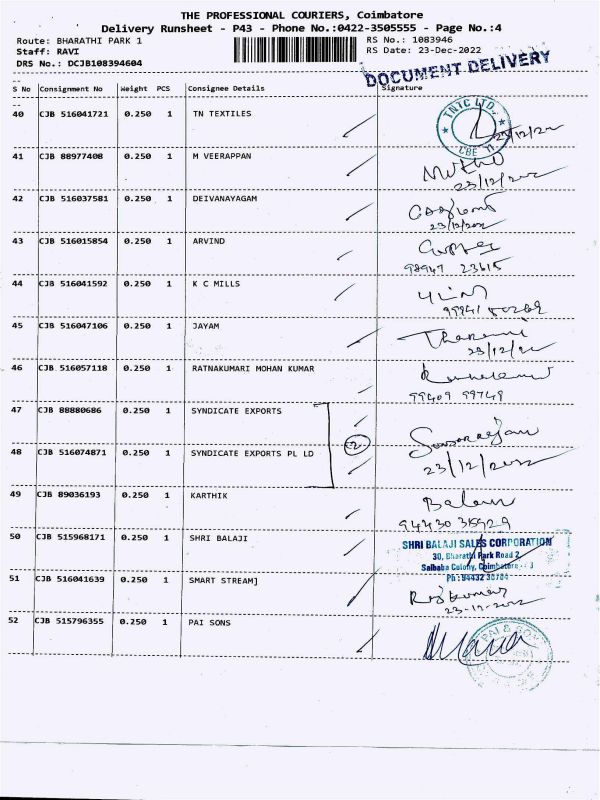 THE PROFESSIONAL COURIERS, Coimbatore
Delivery Runsheet - P43 - Phone No.:0422-3505555 - Page No.:4
Route: BHARATHI PARK 1
RS No.: 1083946
Staff: RAVI
RS Date: 23-Dec-2022
DRS No.: DCJB108394604
DOCUMENT DELIVERY
S No Consignment No Weight PCS Consignee Details Signature
40 CJB 516041721 0.250 1 TN TEXTILES
TNTC LTD.,
CBE
41 CJB 88977408 0.250 1 M VEERAPPAN
23/12/2022
42 CJB 516037581 0.250 1 DEIVANAYAGAM
23/12/2022
43 CJB 516015854 0.250 1 ARVIND
98947 23615
44 CJB 516041592 0.250 1 K C MILLS
45 CJB 516047106 0.250 1 JAYAM
23/12/22
46 CJB 516057118 0.250 1 RATNAKUMARI MOHAN KUMAR
99409 99749
47 CJB 88880686 0.250 1 SYNDICATE EXPORTS
2
48 CJB 516074871 0.250 1 SYNDICATE EXPORTS PL LD
23/12/2022
49 CJB 89036193 0.250 1 KARTHIK
50 CJB 515968171 0.250 1 SHRI BALAJI
SHRI BALAJI SALES CORPORATION
30, Bharathi Park Road 2
Saibaba Colony, Coimbatore
Ph: 94432 30704
51 CJB 516041639 0.250 1 SMART STREAM]
Rajkumar
23-12-2022
52 CJB 515796355 0.250 1 PAI SONS
PAI & SONS